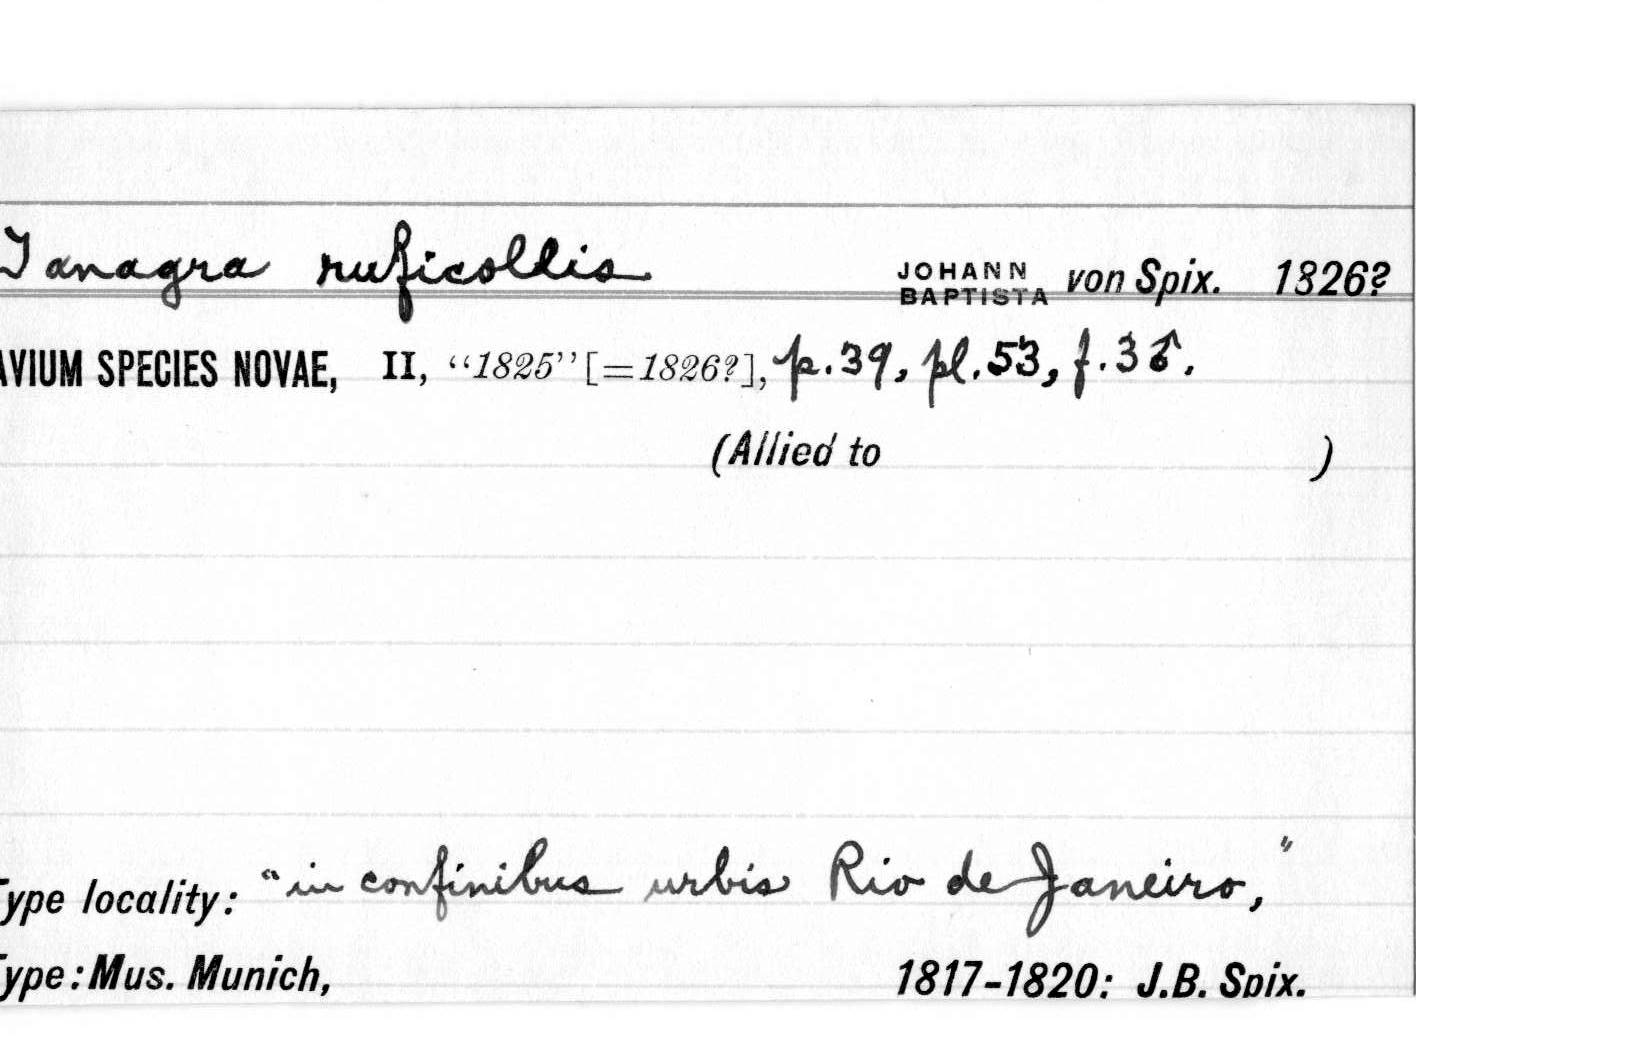 Tanagra ruficollis JOHANN BAPTISTA von Spix. 1826?
AVIUM SPECIES NOVAE, II, “1825” [=1826?], p.39, pl.53, f.3♂.
(Allied to )
Type locality: “in confinibus urbis Rio de Janeiro,”
Type: Mus. Munich, 1817-1820: J.B. Spix.